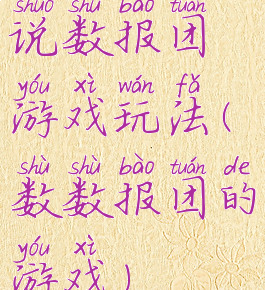 shuō shù bào tuán
说数报团
yóu xì wán fǎ
游戏玩法(
shù shù bào tuán de
数数报团的
yóu xì
游戏)